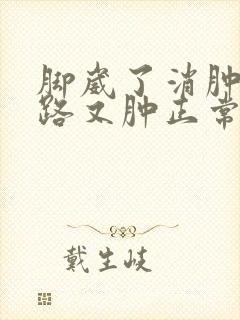 脚崴了消肿
路又肿正常
戴生岐